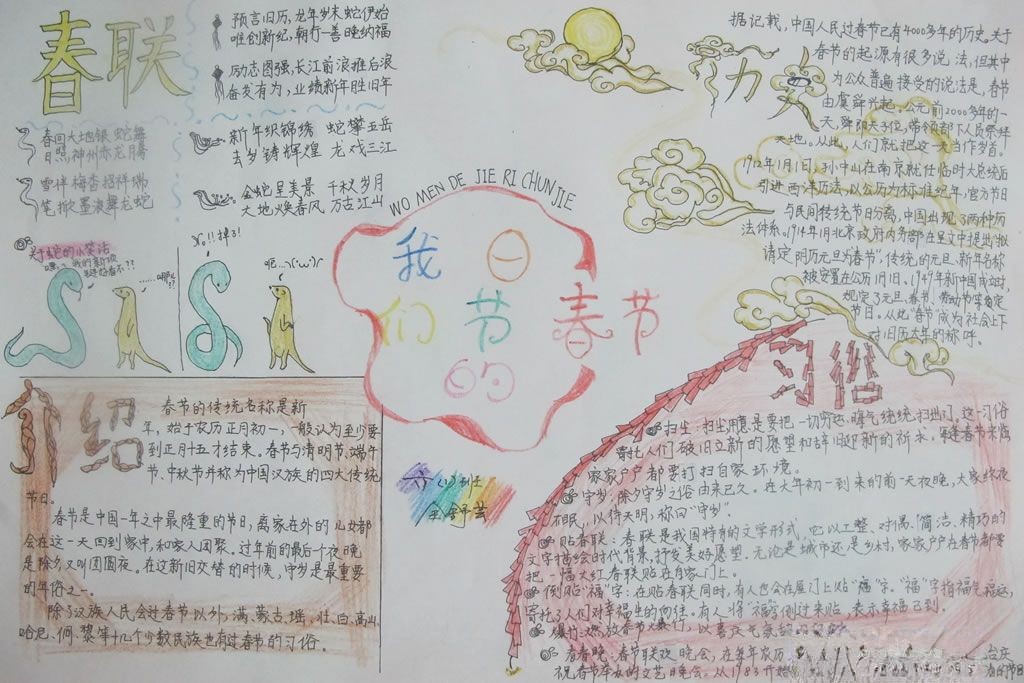 春联
预言旧历,龙年岁末蛇伊始
唯创新纪,朝行一善晚纳福
励志图强,长江前浪推后浪
奋发有为,业绩新年胜旧年
春回大地银蛇舞
日照神州赤龙腾
新年织锦绣 蛇攀五岳
去岁铸辉煌 龙戏三江
雪伴梅香招祥瑞
笔掀墨浪舞龙蛇
金蛇呈美景 千秋岁月
大地焕春风 万古江山
关于蛇的小笑话
嘿。我的新皮
是好看不??
No!!掉了!
呃...
WO MEN DE JIE RI CHUN JIE
我们的节日
春节
六(1)班
介绍
春节的传统名称是新
年,始于农历正月初一,一般认为至少要
到正月十五才结束。春节与清明节、端午
节、中秋节并称为中国汉族的四大传统
节日。
春节是中国一年之中最隆重的节日,离家在外的儿女都
会在这一天回到家中,和家人团聚。过年前的最后个夜晚
是除夕又叫团圆夜。在这新旧交替的时候,守岁是最重要
的年俗一。
除了汉族人民会过春节以外,满、蒙古、瑶、壮、白、高山
哈尼、侗、黎等十几个少数民族也有过春节的习俗。
历史
据记载,中国人民过春节已有4000多年的历史。关于
春节的起源有很多说法,但其中
为公众普遍接受的说法是,春节
由虞舜兴起。公元前2000多年的一
天,舜即天子位,带领部下人员祭拜
天地。从此,人们就把这一天当作岁首。
1912年1月1日,孙中山在南京就任临时大总统后
引进西洋历法,以公历为标准纪年,官方节日
与民间传统节日分离,中国出现了两种历
法体系。1914年1月北京政府内务部在呈文中提出"拟
请定阴历元旦为春节",传统的元旦、新年名称
被安置在公历1月1日。1949年新中国成立时,
规定了元旦、春节、劳动节等鉴定
节日。从此"春节"成为社会上下
对旧历大年的称呼。
习俗
扫尘:扫尘用意是要把一切穷运、晦气统统扫出门。这一习俗
寄托人们破旧立新的愿望和辞旧迎新的祈求。每逢春节来临
家家户户都要打扫自家环境。
守岁:除夕守岁之俗由来已久。在大年初一到来的前一天夜晚,大家终夜
不眠,以待天明,称曰"守岁"。
贴春联:春联是我国特有的文学形式,它以工整、对偶、简洁、精巧的
文字描绘时代背景,抒发美好愿望。无论是城市还是乡村,家家户户在春节都要
把一幅大红春联贴在自家门上。
倒贴"福"字:在贴春联同时,有人也会在屋门上贴"福"字。"福"字指福气福运,
寄托了人们对幸福生的向往。有人将"福"字倒过来贴,表示幸福已到。
爆竹:燃放春节
看春晚:春节联欢晚会,在每年农历
祝春节举办的文艺晚会。从1983开始